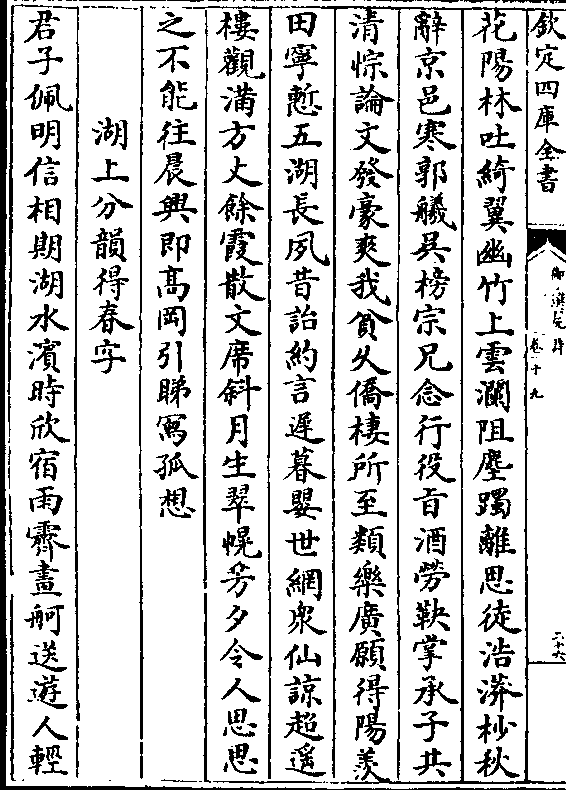 欽定四庫全書
御選元詩
卷十九
二十六
花陽林吐綺翼幽竹上雲瀾阻塵躅離思徒浩漭杪秋
辭京邑寒郭艤吳榜宗兄念行役㫖酒勞鞅掌承子共
清悰論文發豪爽我貧乆僑棲所至類樂廣願得陽羨
田寧慙五湖長夙昔詒約言遲暮嬰世網衆仙諒超遥
樓觀滿方丈餘霞散文席斜月生翠幌芳夕令人思思
之不能往晨興即高岡引睇寫孤想
湖上分韻得春字
君子佩明信相期湖水濱時欣宿雨霽畫舸送遊人輕